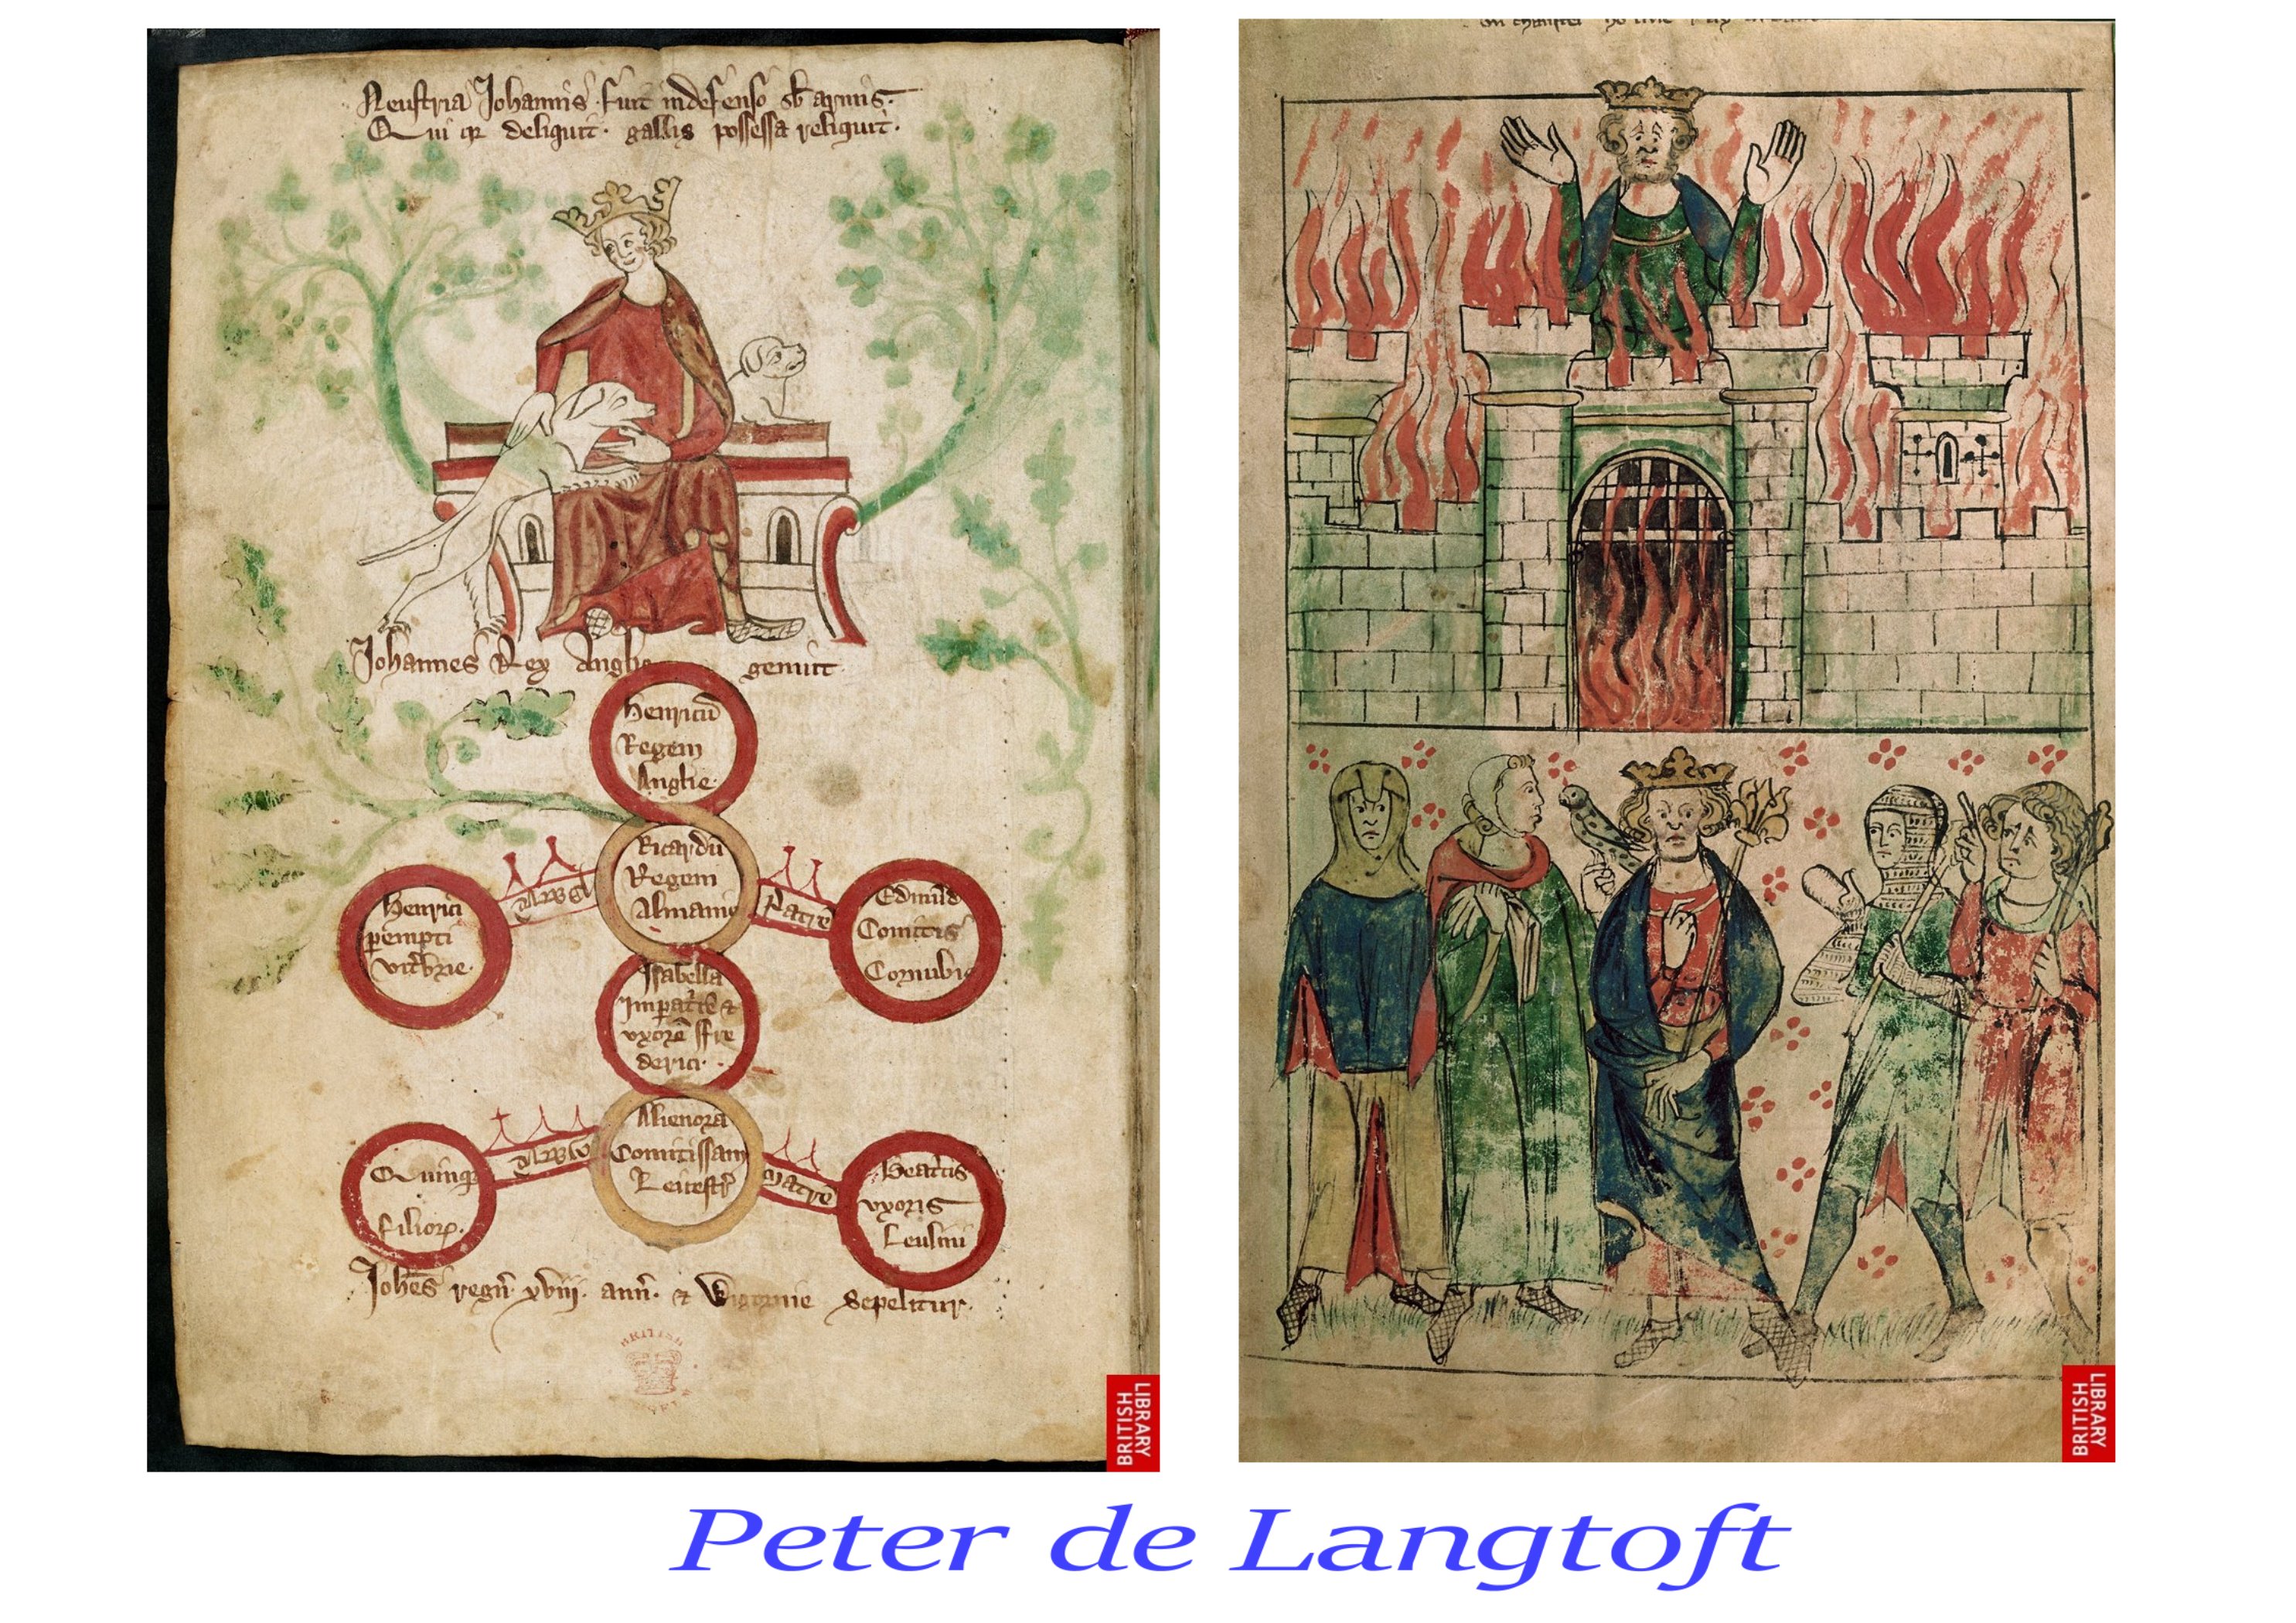 Neustria Johannis fuit indefenso sb armis.
Qui qr deliquit. gallis possessa reliquit.
Johannes Rex Anglie genuit
Henricū
Regem
Anglie.
Ricardū
Regem
Almanie
Henrici
pempti
Patre
Edmūd
Comitis
Cornubie
Isabella
uxorē ffre
derici.
Alienora
Comitissam
Leicestr
Quinq
filior
Matre
Beatis
uxoris
Leulini
Johēs regn xviii. ann. & Wigornie Sepelitur.
BRITISH
LIBRARY
BRITISH
LIBRARY
BRITISH
Peter de Langtoft